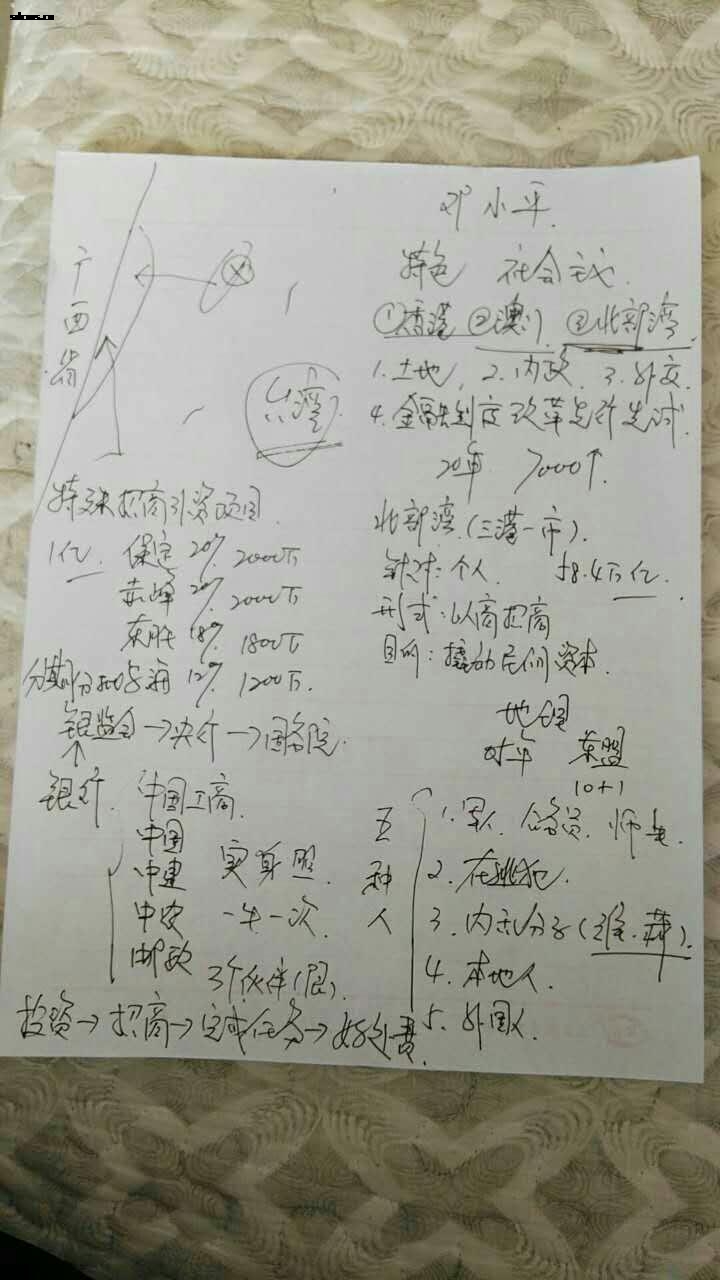 邓小平
特色 社会主义
①香港 ②澳门 ③北部湾
1.土地. 2.内政. 3.外交.
4.金融制度改革先行先试.
20年 7000个
北部湾.(三港一市).
针对:个人 18.4万亿.
形式:以商招商
目的:撬动民间资本.
地图
对年 东盟
10+1
广西省
台湾
特殊招商引资项目
1亿 保定 20% 2000万
赤峰 20% 2000万
东胜 18% 1800万
分期分批 12% 1200万.
银监会→央行→国务院.
↑
银行. 中国工商.
中国
中建 实身照.
中农 一年一次.
邮政
3个伙伴(限).
投资→招商→完成任务→好处费.
五种人
1.军人 公务员. 师生.
2.在逃犯.
3. 分子(维.藏).
4.本地人.
5.外国人.